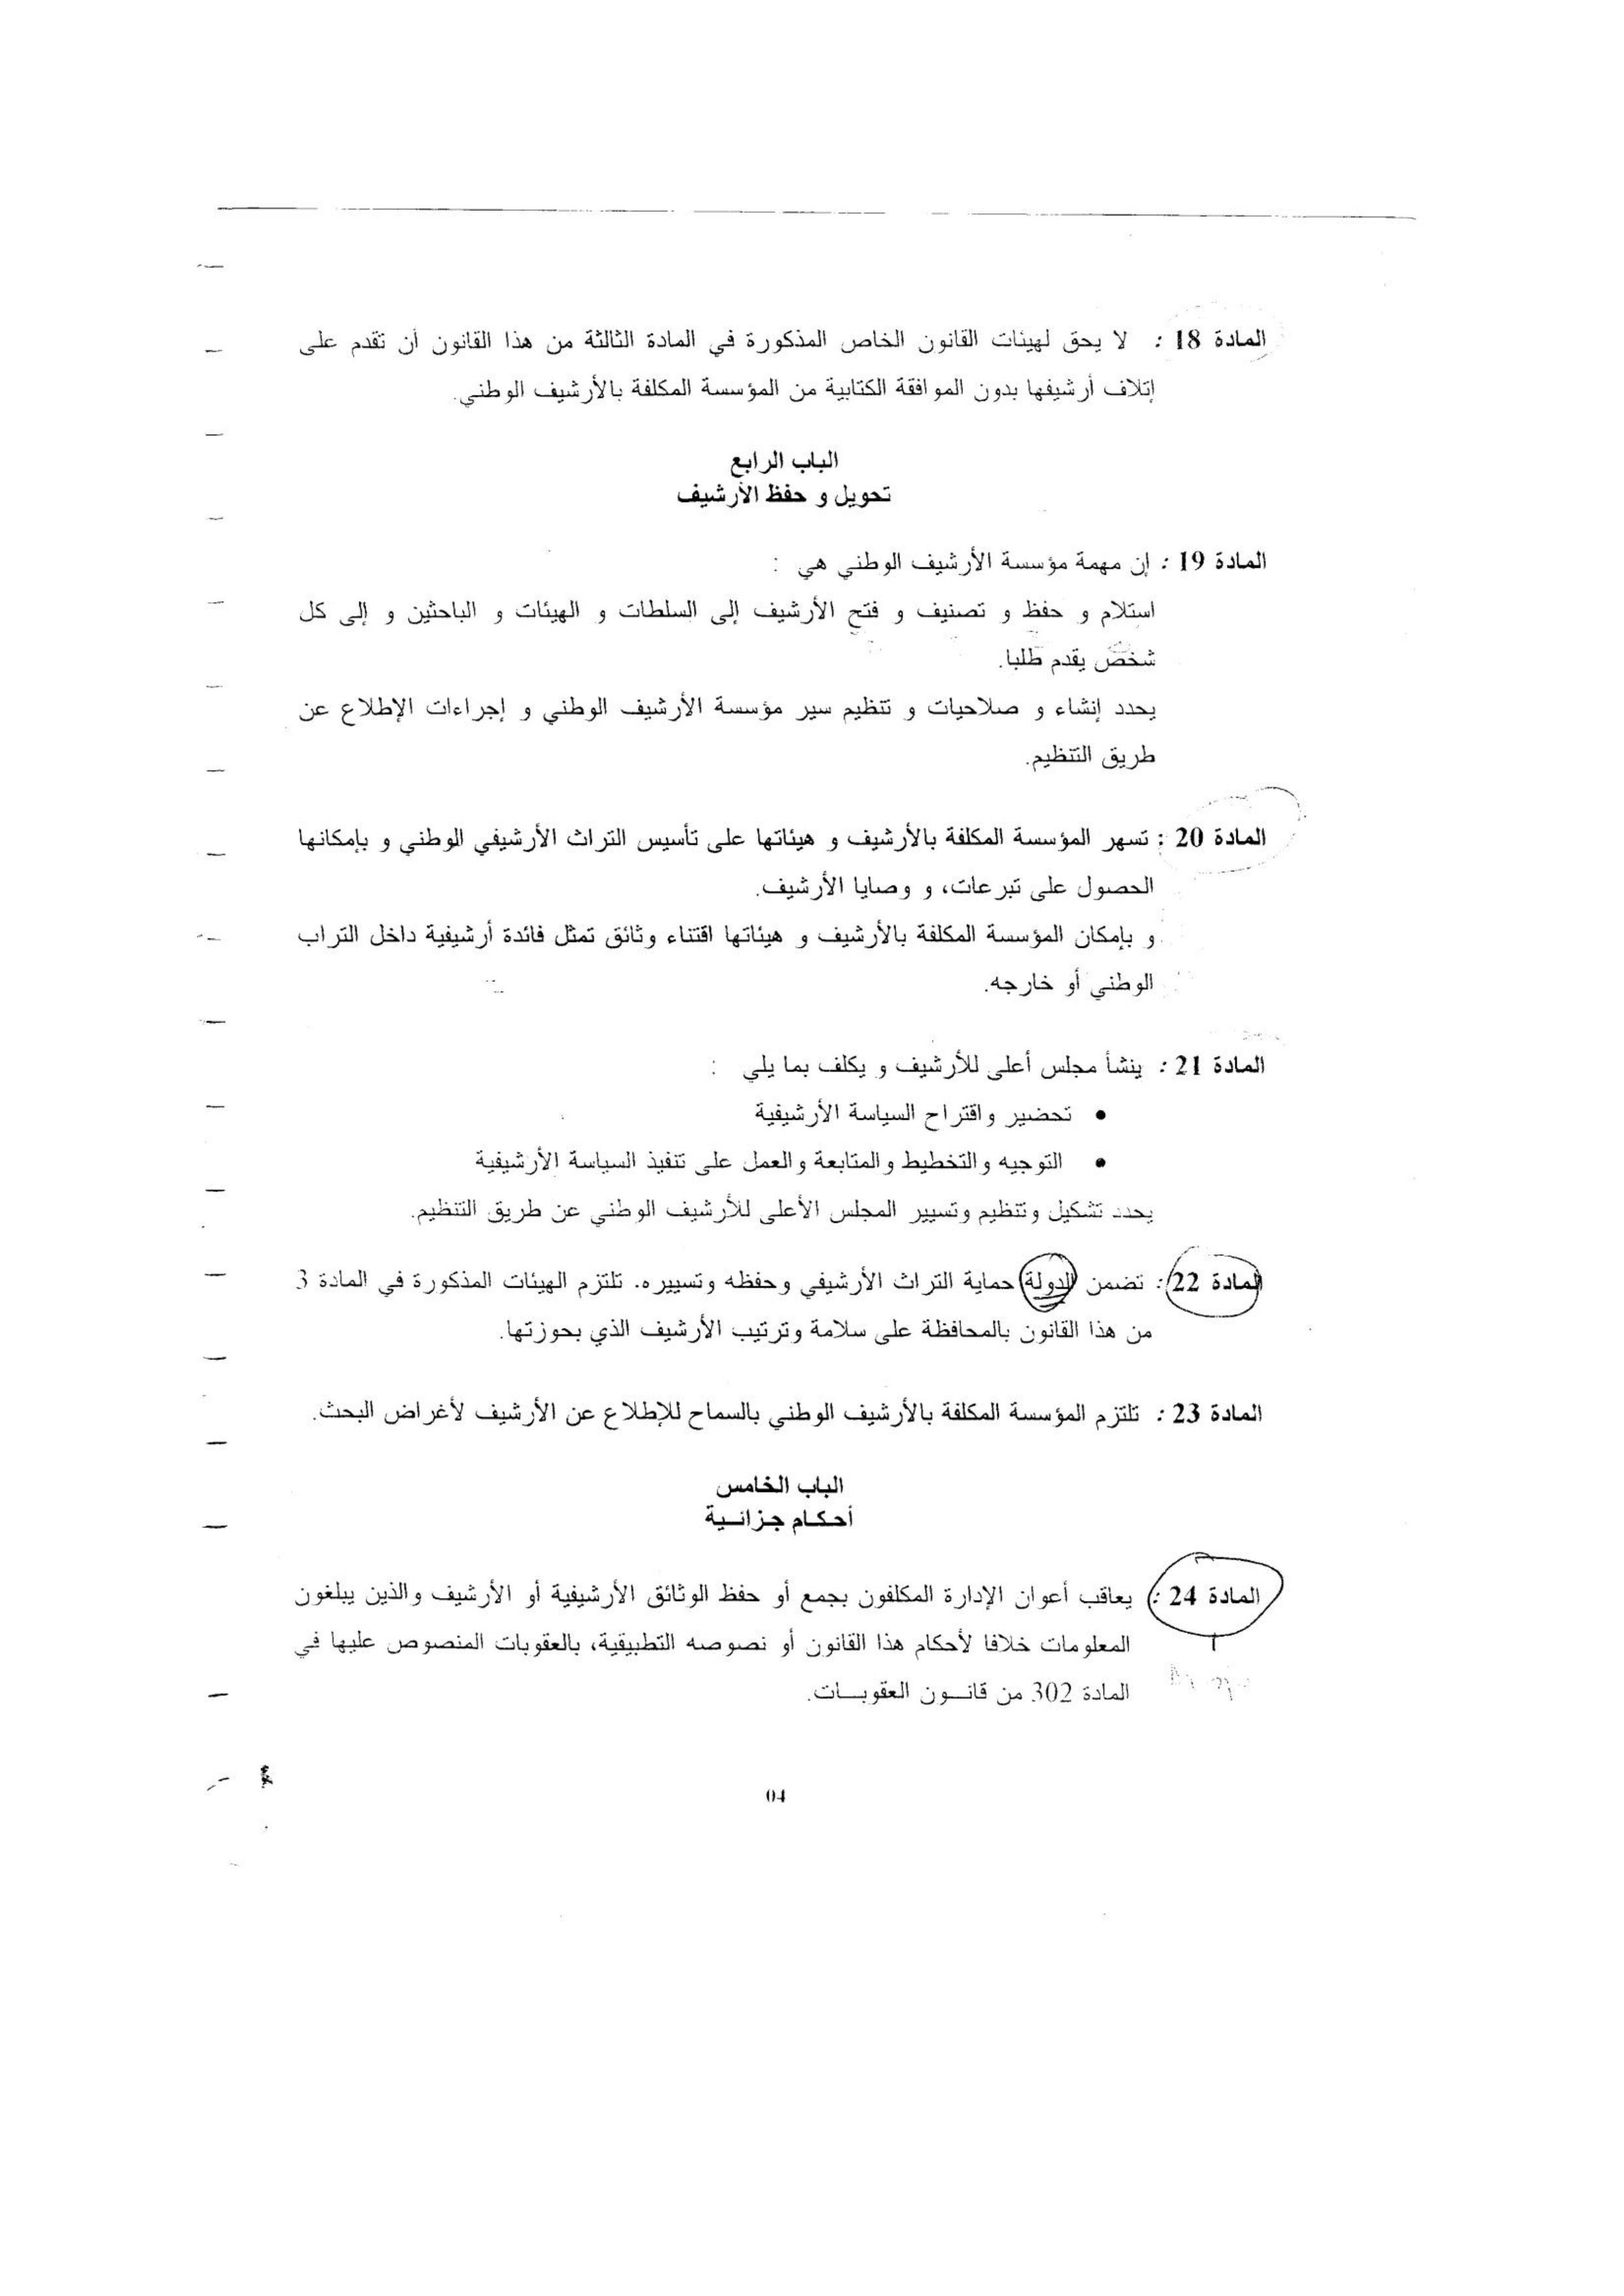 المادة 18 : لا يحق لهيئات القانون الخاص المذكورة في المادة الثالثة من هذا القانون أن تقدم على
إتلاف أرشيفها بدون الموافقة الكتابية من المؤسسة المكلفة بالأرشيف الوطني.
الباب الرابع
تحويل و حفظ الأرشيف
المادة 19 : إن مهمة مؤسسة الأرشيف الوطني هي :
استلام و حفظ و تصنيف و فتح الأرشيف إلى السلطات و الهيئات و الباحثين و إلى كل
شخص يقدم طلبا.
يحدد إنشاء و صلاحيات و تنظيم سير مؤسسة الأرشيف الوطني و إجراءات الإطلاع عن
طريق التنظيم.
المادة 20 : تسهر المؤسسة المكلفة بالأرشيف و هيئاتها على تأسيس التراث الأرشيفي الوطني و بإمكانها
الحصول على تبرعات، و وصايا الأرشيف.
و بإمكان المؤسسة المكلفة بالأرشيف و هيئاتها اقتناء وثائق تمثل فائدة أرشيفية داخل التراب
الوطني أو خارجه.
المادة 21 : ينشأ مجلس أعلى للأرشيف و يكلف بما يلي :
• تحضير واقتراح السياسة الأرشيفية
• التوجيه والتخطيط والمتابعة والعمل على تنفيذ السياسة الأرشيفية
يحدد تشكيل وتنظيم وتسيير المجلس الأعلى للأرشيف الوطني عن طريق التنظيم.
المادة 22 : تضمن الدولة حماية التراث الأرشيفي وحفظه وتسييره. تلتزم الهيئات المذكورة في المادة 3
من هذا القانون بالمحافظة على سلامة وترتيب الأرشيف الذي بحوزتها.
المادة 23 : تلتزم المؤسسة المكلفة بالأرشيف الوطني بالسماح للإطلاع عن الأرشيف لأغراض البحث.
الباب الخامس
أحكام جزائية
المادة 24 : يعاقب أعوان الإدارة المكلفون بجمع أو حفظ الوثائق الأرشيفية أو الأرشيف والذين يبلغون
المعلومات خلافا لأحكام هذا القانون أو نصوصه التطبيقية، بالعقوبات المنصوص عليها في
المادة 302 من قانون العقوبات.
04